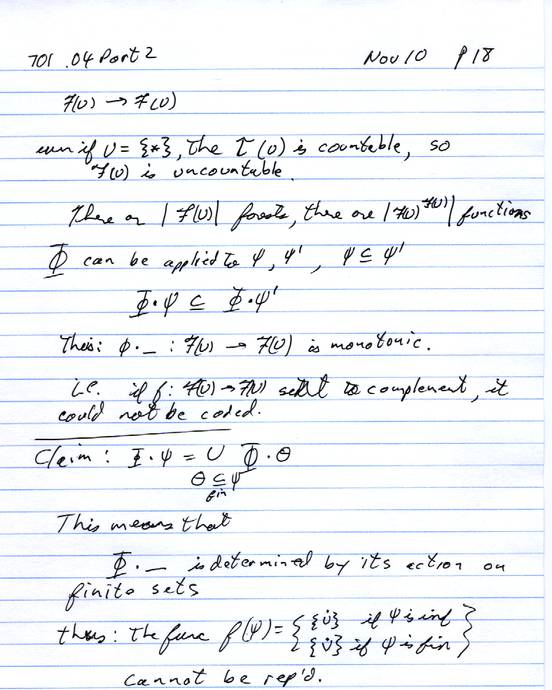 701 .04 Part 2 Nov 10 p18
F(U) → F(U)
even if U = {*}, the T(U) is countable, so
F(U) is uncountable.
There are |F(U)| forests, there are |F(U)^F(U)| functions
Φ can be applied to ψ, ψ', ψ ⊆ ψ'
Φ·ψ ⊆ Φ·ψ'
Thus: Φ·_ : F(U) → F(U) is monotonic.
i.e. if f: F(U) → F(U) to complement, it
could not be coded.
Claim: Φ·ψ = ∪ Φ·θ
θ ⊆ ψ
fin
This means that
Φ·_ is determined by its action on
finite sets
thus: The func f(ψ) = { if ψ is inf
if ψ is fin }
cannot be rep'd.